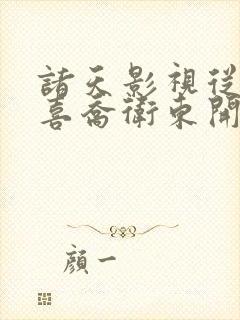 諸天影視從
喜喬衛東開
顏一